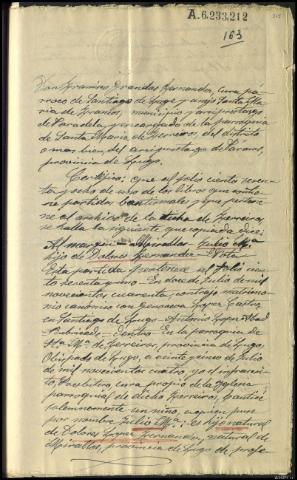 A.6.233.212
163
Don Ramiro Grandas Fernandez, cura pa-
rroco de Santiago de Lugo y anejo Santa Ma-
ria de Franos, municipio y arciprestazgo
de Paradela, encargado de la parroquia
de Santa Maria de Ferreiros, del distrito
o mas bien del arciprestazgo de Páramo,
provincia de Lugo.
Certifico: Que al folio ciento sesen-
ta y ocho de uno de los libros que contie-
ne partidas bautismales y que pertene-
ne al archivo de la dicha de Ferreiros
se halla la siguiente que copiada dice:
Al margen Mirallos Julio Mª
hijo de Dolores Fernandez Nota
Esta partida al folio cien-
to sesenta y uno. En doce de Julio de mil
novecientos cuarenta, contrajo matrimo-
nio canonico con Lopez Castro,
en Santiago de Lugo Antonio Lopez Abad
Rubricado Dentro En la parroquia de
Stª Mª de Ferreiros, provincia de Lugo,
Obispado de Lugo, a veinte y cinco de Julio
de mil novecientos cuatro yo el infrascri-
to, Presbitero, cura propio de la Iglesia
parroquial de dicho Ferreiros, bauticé
solemnemente un niño, a quien puse
por nombre Julio Mª; es hijo natural
de Dolores Lopez Fernandez, natural de
Mirallos, provincia de Lugo de profe-